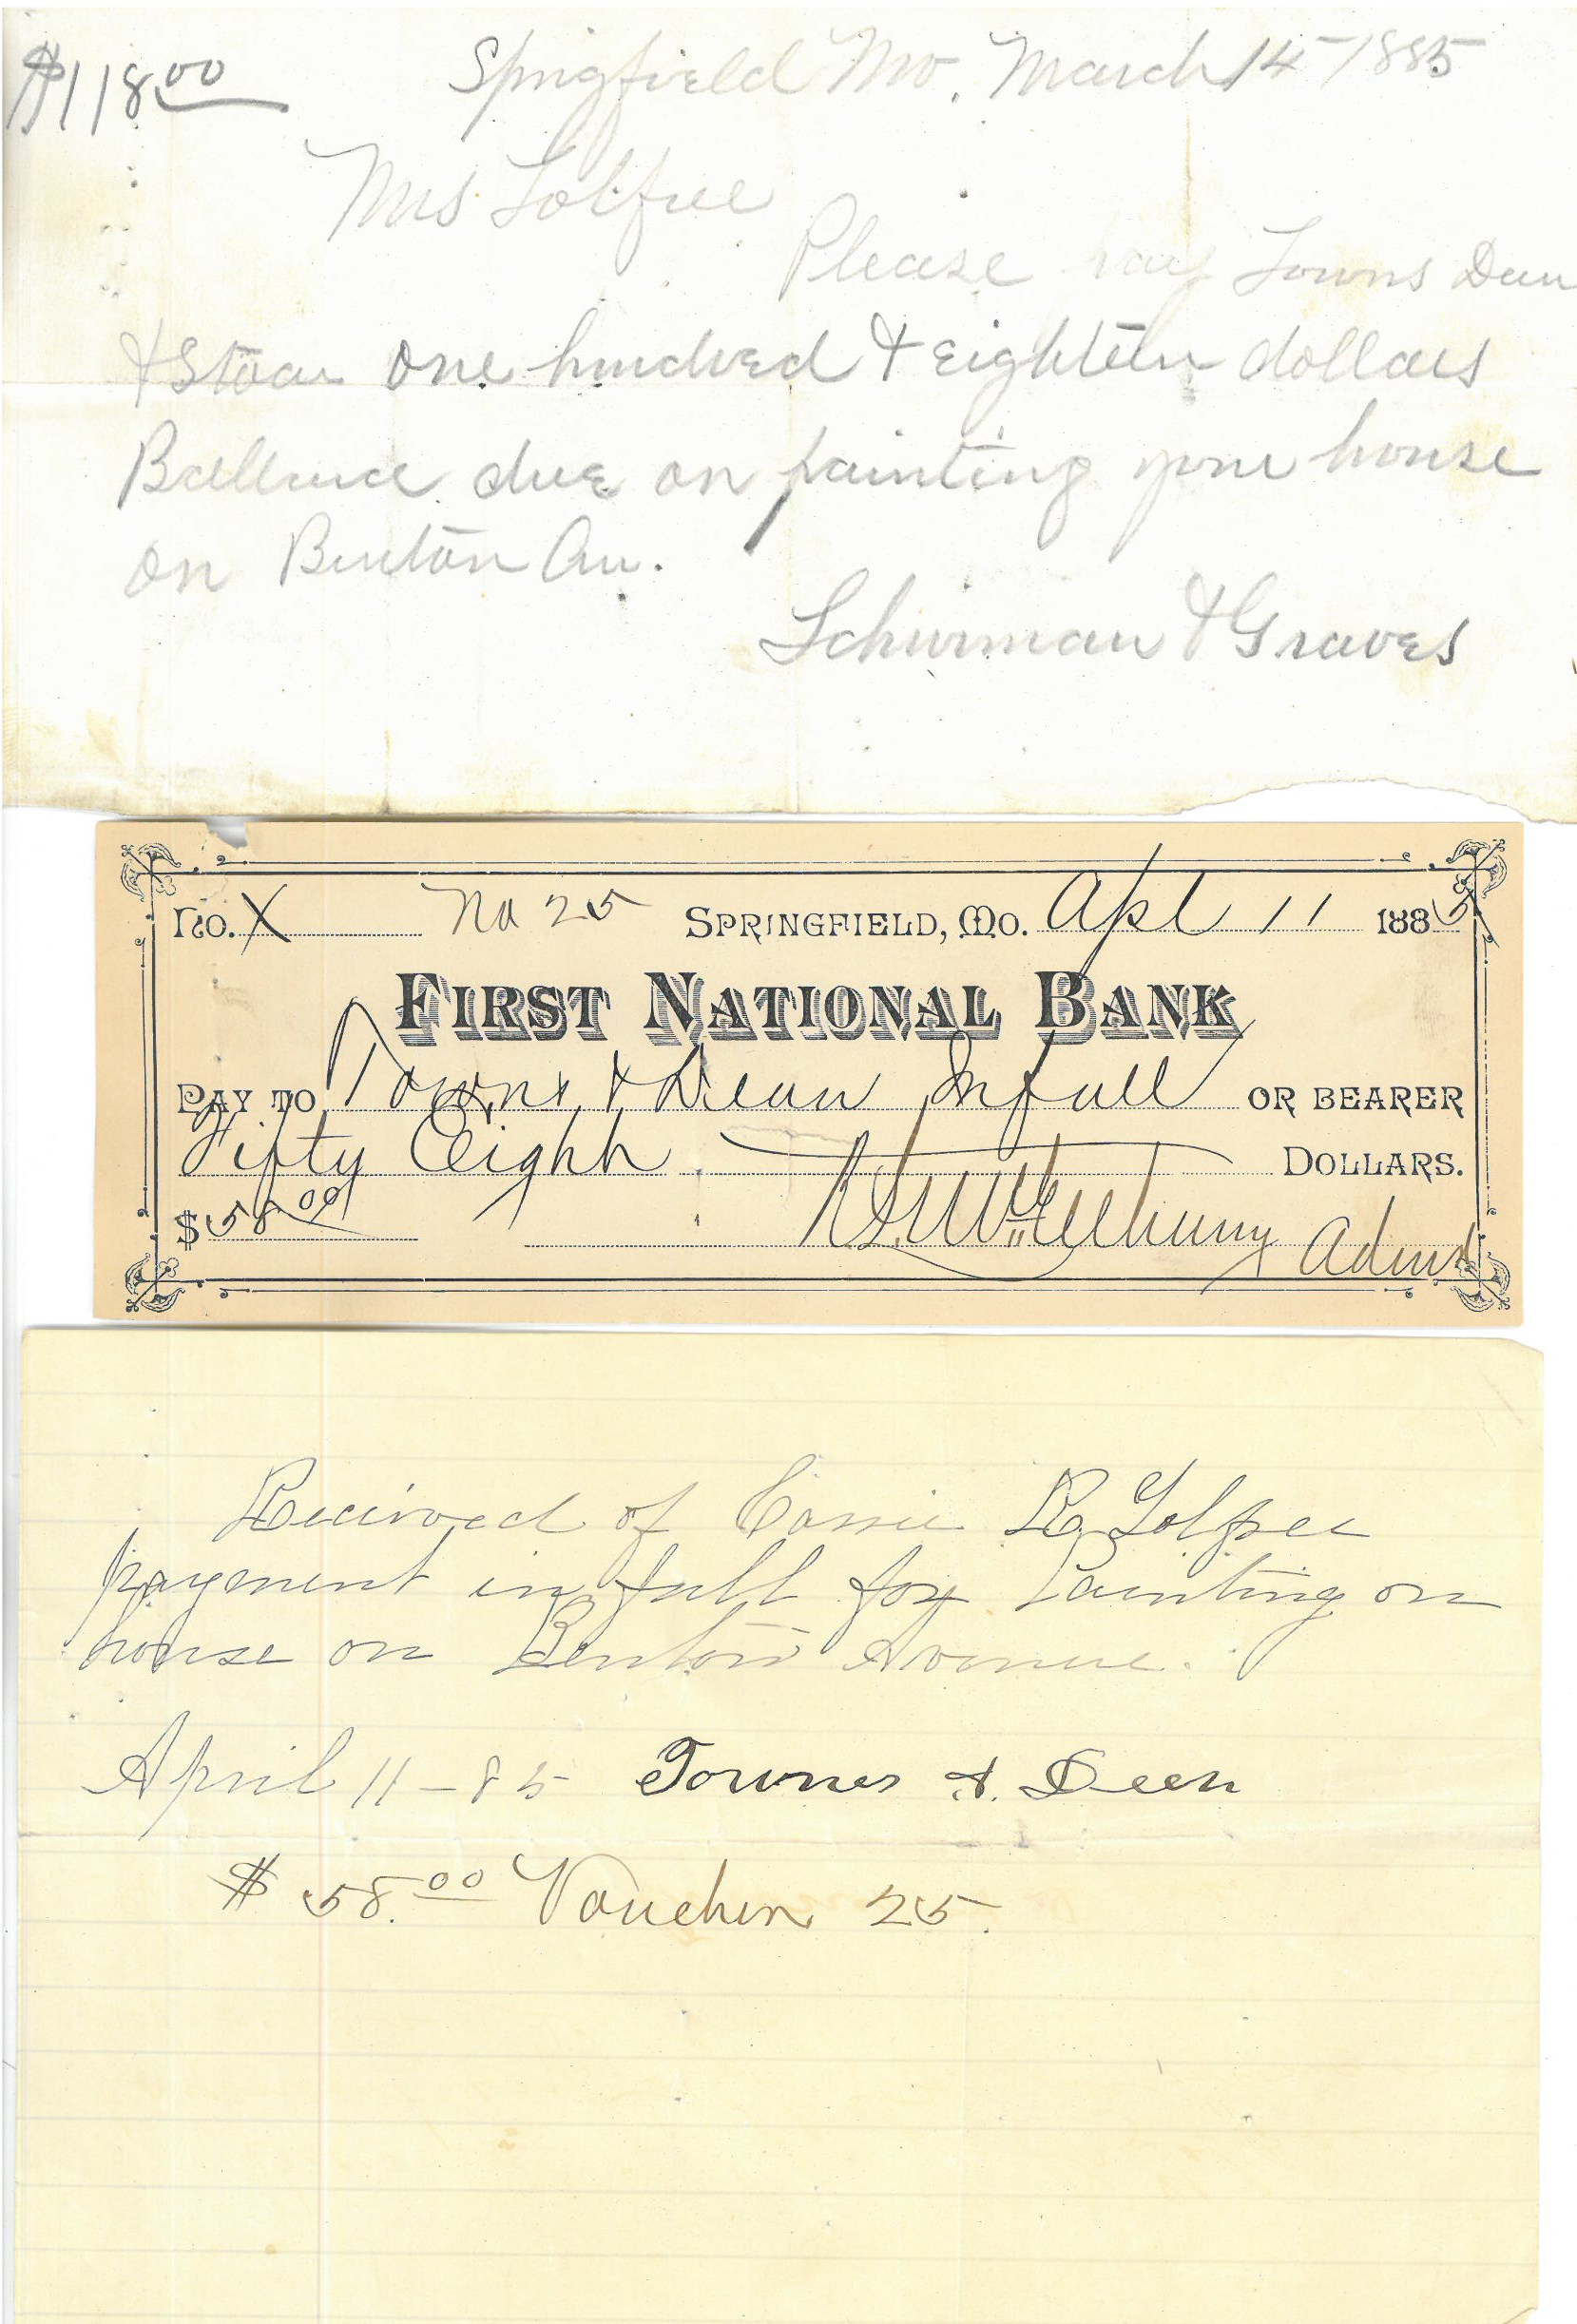 $118.00 Springfield Mo. March 14 - 1885
Mrs Tolfree
Please pay Towns Dean
& Stoar one hundred & eighteen dollars
Ballance due on painting your house
on Benton Av.
Schurman & Graves
No. X No 25 SPRINGFIELD, MO. Apl 11 1885
FIRST NATIONAL BANK
PAY TO Towns & Dean In full OR BEARER
Fifty Eight DOLLARS.
$58.00 Admr
Received of Cassie R Tolfree
payment in full for Painting on
house on Benton Avenue.
April 11 - 85 Townes & Deen
$58.00 Voucher 25.